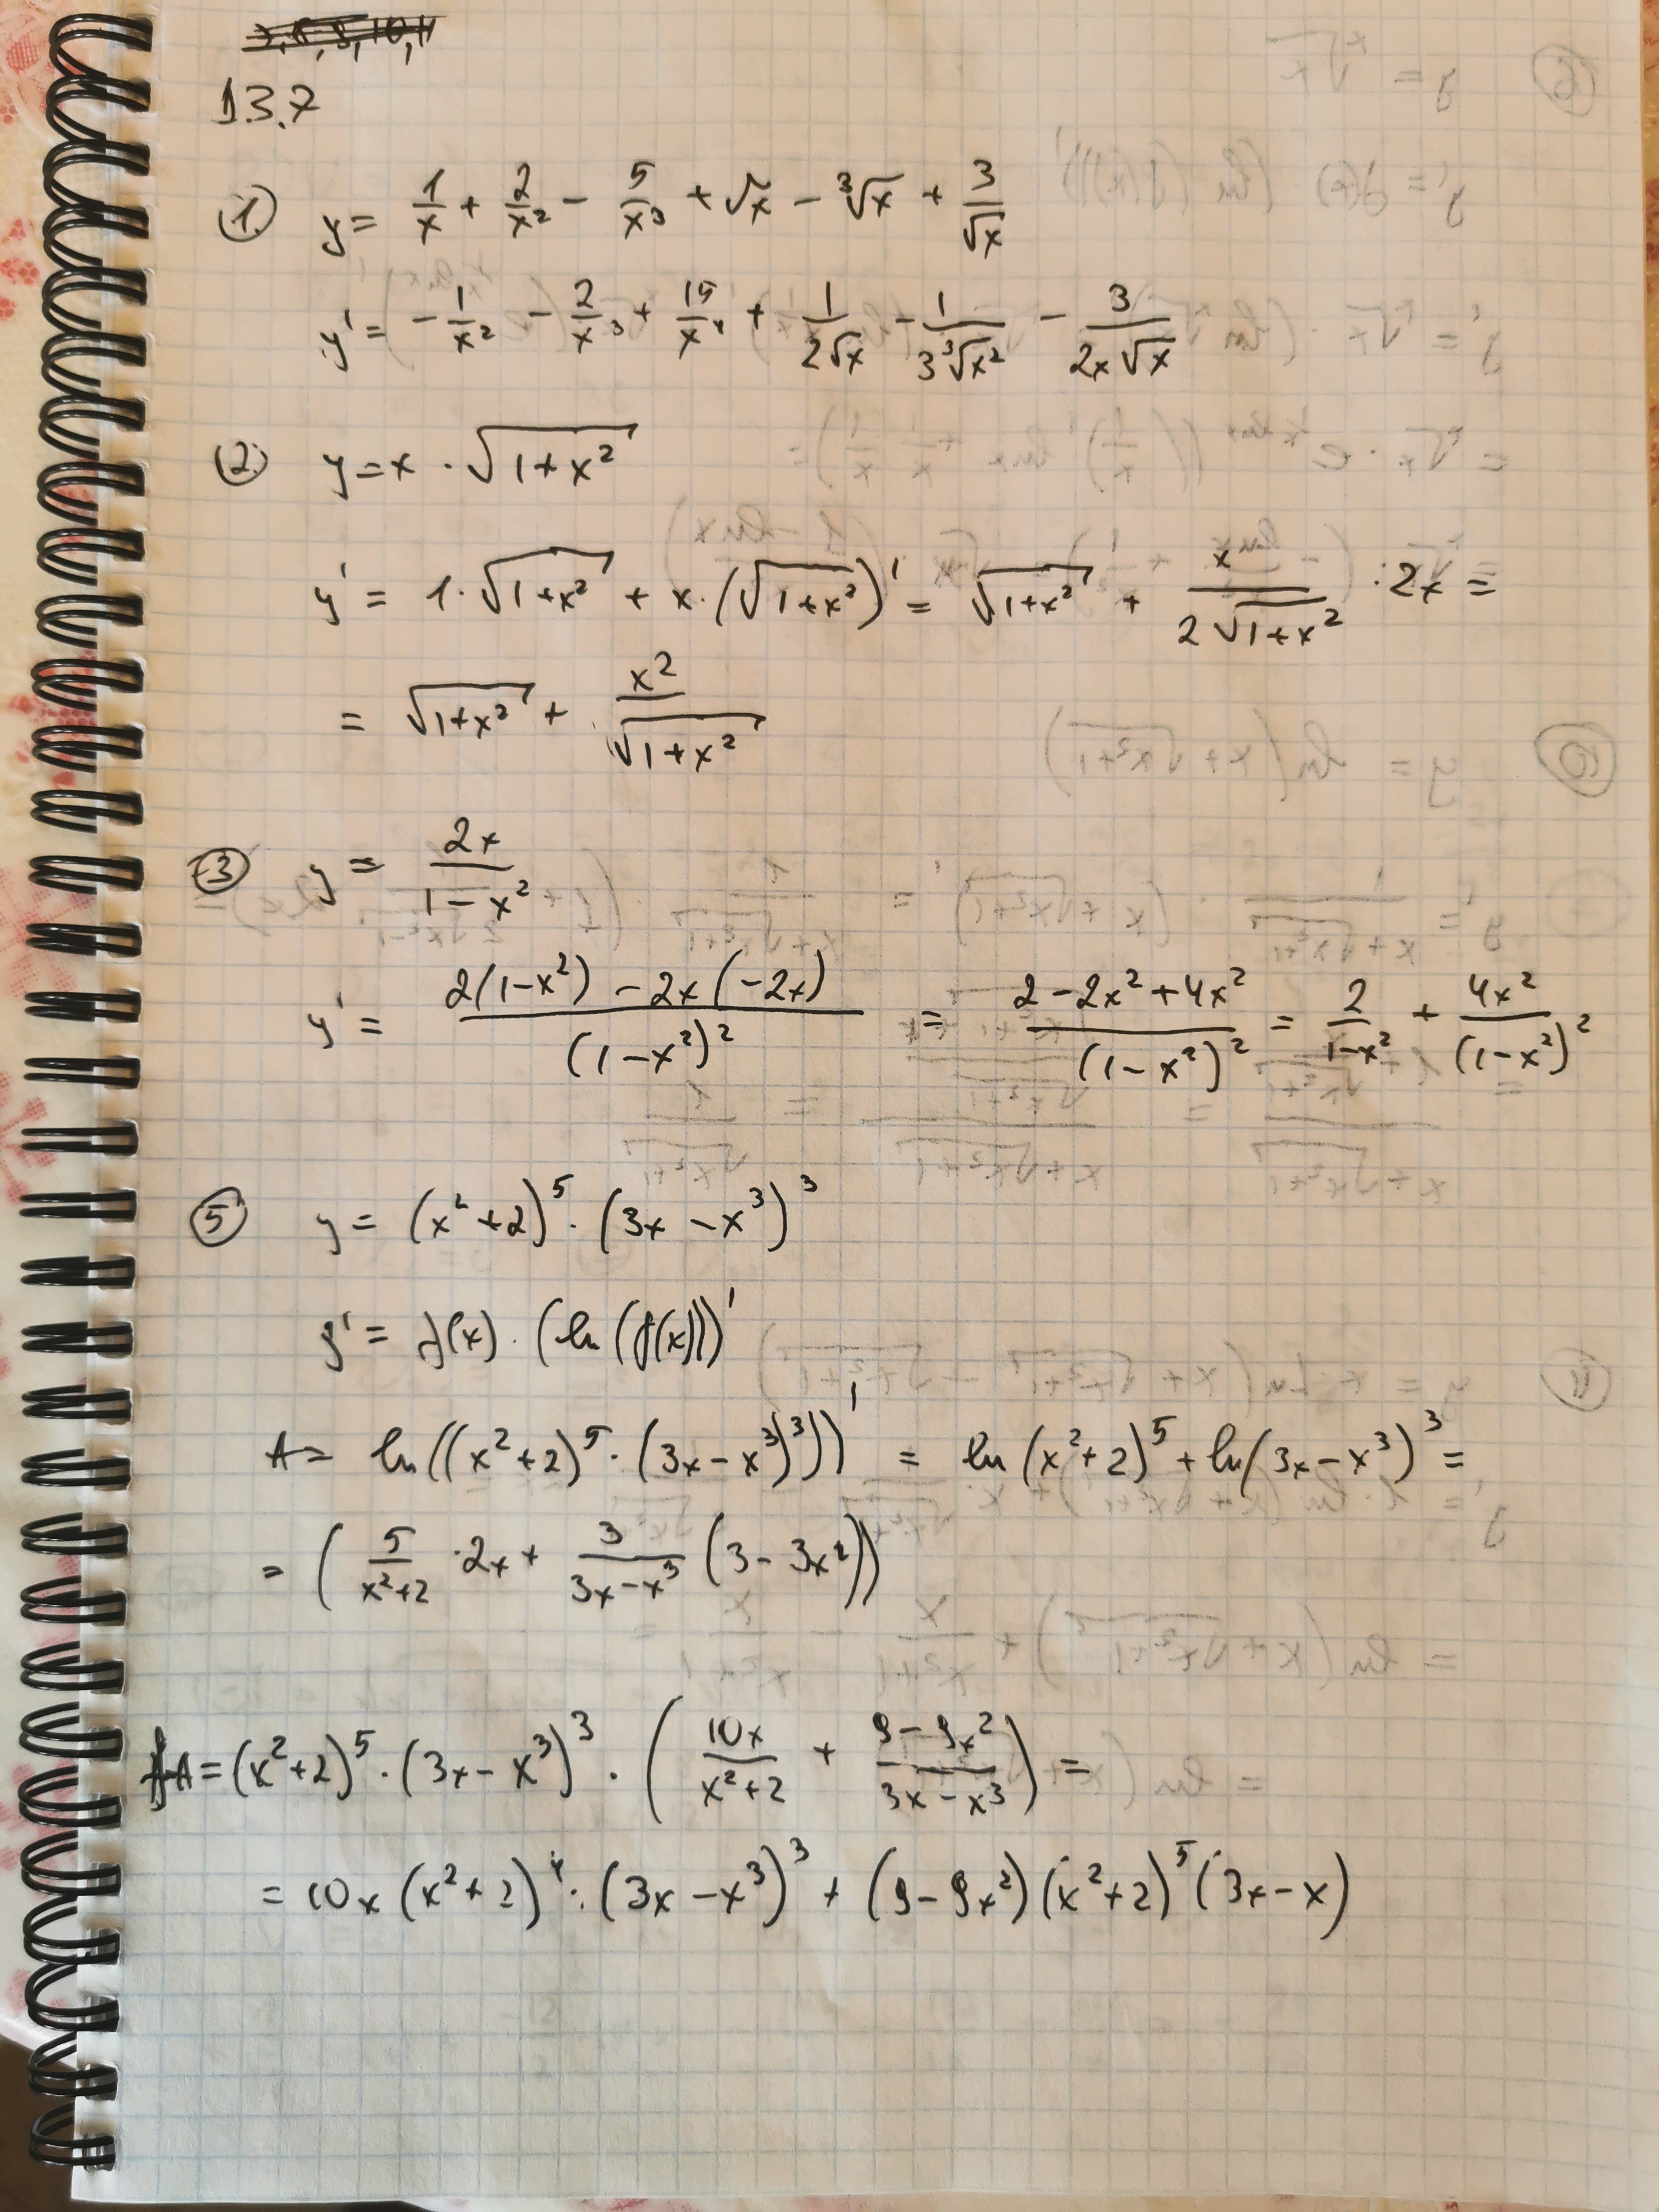 13.7
① y = 1/x + 2/x² - 5/x³ + √x - ³√x + 3/√x
y' = - 1/x² - 2/x³ + 15/x⁴ + 1/(2√x) - 1/(3³√x²) - 3/(2x√x)
② y = x · √(1+x²)
y' = 1·√(1+x²) + x·(√(1+x²))' = √(1+x²) + x/(2√(1+x²)) · 2x =
= √(1+x²) + x²/√(1+x²)
③ y = 2x/(1-x²)
y' = (2(1-x²) - 2x(-2x))/(1-x²)² = (2-2x²+4x²)/(1-x²)² = 2/(1-x²) + 4x²/(1-x²)²
⑤ y = (x²+2)⁵ · (3x-x³)³
y' = f(x) · (ln(f(x)))'
A = ln((x²+2)⁵ · (3x-x³)³))' = ln(x²+2)⁵ + ln(3x-x³)³ =
= (5/(x²+2) · 2x + 3/(3x-x³) (3-3x²))
A = (x²+2)⁵ · (3x-x³)³ · (10x/(x²+2) + (9-9x²)/(3x-x³)) =
= 10x(x²+2)⁴ · (3x-x³)³ + (9-9x²)(x²+2)⁵(3x-x)